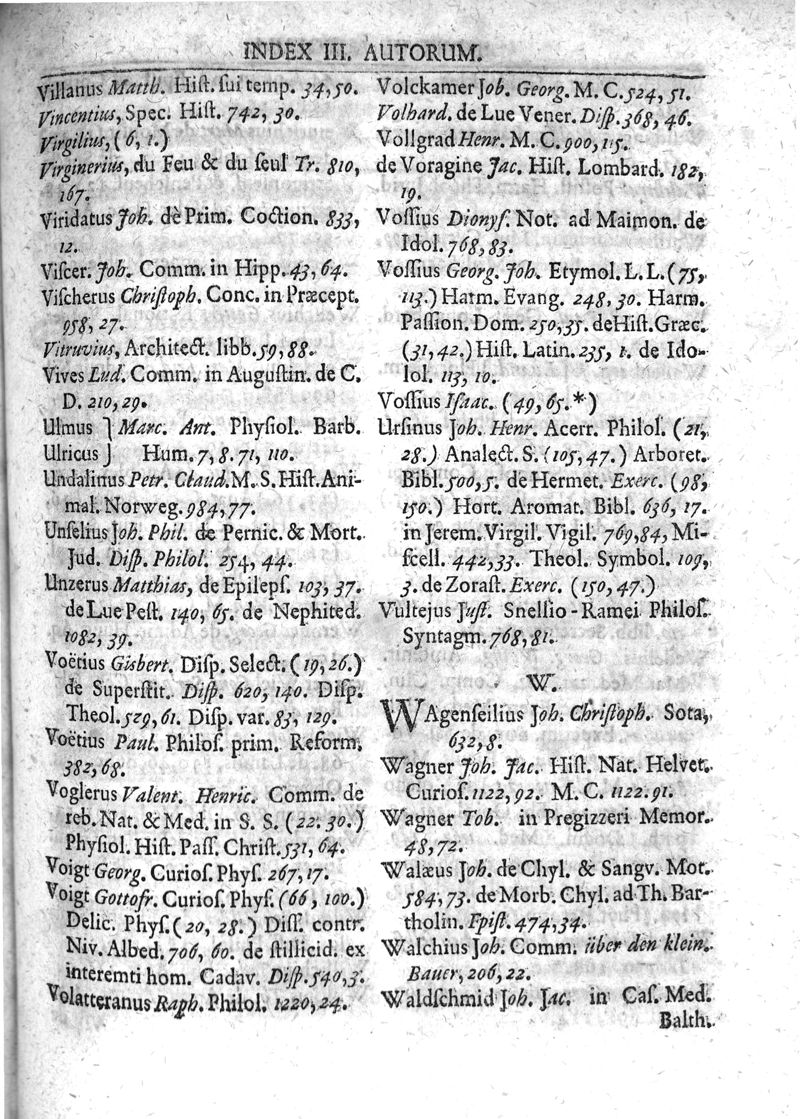 INDEX III. AUTORUM.
Villanus Matth. Hiſt. ſui temp. 34, 50.
Vincentius, Spec. Hiſt. 742, 30.
Virgilius, (6, 1.)
Virginerius, du Feu & du ſeul Tr. 810,
167.
Viridatus Joh. dè Prim. Coction. 833,
12.
Viſcer. Joh. Comm. in Hipp. 43, 64.
Viſcherus Chriſtoph. Conc. in Præcept.
958, 27.
Vitruvius, Architect. libb. 59, 88.
Vives Lud. Comm. in Auguſtin. de C.
D. 210, 29.
Ulmus } Marc. Ant. Phyſiol. Barb.
Ulricus } Hum. 7, 8. 71, 110.
Undalinus Petr. Claud. M. S. Hiſt. Ani-
mal. Norweg. 984, 77.
Unſelius Joh. Phil. de Pernic. & Mort.
Jud. Diſp. Philol. 254, 44.
Unzerus Matthias, de Epilepſ. 103, 37.
de Lue Peſt. 140, 65. de Nephited.
1082, 39.
Voëtius Gisbert. Diſp. Select. (19, 26.)
de Superſtit. Diſp. 620, 140. Diſp.
Theol. 529, 61. Diſp. var. 83, 129.
Voëtius Paul. Philoſ. prim. Reform.
382, 68.
Voglerus Valent. Henric. Comm. de
reb. Nat. & Med. in S. S. (22. 30.)
Phyſiol. Hiſt. Paſſ. Chriſt. 531, 64.
Voigt Georg. Curioſ. Phyſ. 267, 17.
Voigt Gottofr. Curioſ. Phyſ. (66, 100.)
Delic. Phyſ. (20, 28.) Diſſ. contr.
Niv. Albed. 706, 60. de ſtillicid. ex
interemti hom. Cadav. Diſp. 540, 3.
Volatteranus Raph. Philol. 1220, 24.
Volckamer Job. Georg. M. C. 524, 51.
Volhard. de Lue Vener. Diſp. 368, 46.
Vollgrad Henr. M. C. 900, 115.
de Voragine Jac. Hiſt. Lombard. 182,
19.
Voſſius Dionyſ. Not. ad Maimon. de
Idol. 768, 83.
Voſſius Georg. Joh. Etymol. L. L. (75,
113.) Harm. Evang. 248, 30. Harm.
Paſſion. Dom. 250, 35. de Hiſt. Græc.
(31, 42.) Hiſt. Latin. 235, 1. de Ido-
lol. 113, 10.
Voſſius Iſaac. (49, 65. *)
Urſinus Joh. Henr. Acerr. Philol. (21,
28.) Analect. S. (105, 47.) Arboret.
Bibl. 500, 5. de Hermet. Exerc. (98,
150.) Hort. Aromat. Bibl. 636, 17.
in Jerem. Virgil. Vigil. 769, 84, Mi-
ſcell. 442, 33. Theol. Symbol. 109,
3. de Zoraſt. Exerc. (150, 47.)
Vultejus Juſt. Snelſio-Ramei Philoſ.
Syntagm. 768, 81.
W.
WAgenſeilius Joh. Chriſtoph. Sota,
632, 8.
Wagner Joh. Jac. Hiſt. Nat. Helvet.
Curioſ. 1122, 92. M. C. 1122. 91.
Wagner Tob. in Pregizzeri Memor.
48, 72.
Walæus Joh. de Chyl. & Sangv. Mot.
584, 73. de Morb. Chyl. ad Th. Bar-
tholin. Epiſt. 474, 34.
Walchius Joh. Comm. über den klein.
Bauer, 206, 22.
Waldſchmid Joh. Jac. in Caſ. Med.
Balth.